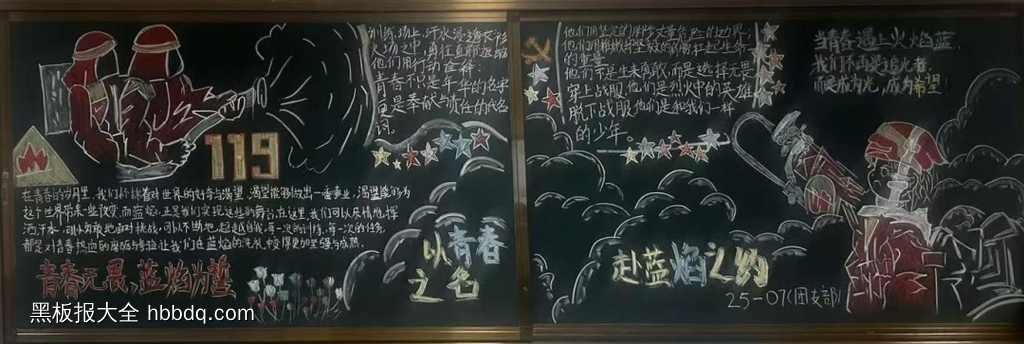 119
训练场上,汗水浸透衣衫
火场之中,勇往直前
他们用行动诠释:
青春不仅是年华的名字
更是奉献与责任的代名
词。
在青春的岁月里,我们怀揣着对世界的好奇与渴望,渴望能够做出一番事业,渴望能够为
这个世界带来一些改变,而蓝焰,正是我们实现这些的舞台,在这里,我们可以尽情地挥
洒汗水,可以勇敢地面对挑战,可以不断地超越自我,每一次的训练,每一次的任务,
都是对青春热血的
让我们在蓝焰的洗礼中变得更加坚强与成熟。
青春无畏,蓝焰为誓
以青春
之名
他们用坚定的脚步丈量危险的边界,
他们用
生命
的重量
他们不是生来勇敢,而是选择无畏
穿上战服,他们是烈火中的英雄
脱下战服,他们是和我们一样
的少年。
赴蓝焰之约
25-07(团支部)
当青春遇上火焰蓝,
我们不再是追光者
而是成为光,成为希望
黑板报大全 hbbdq.com